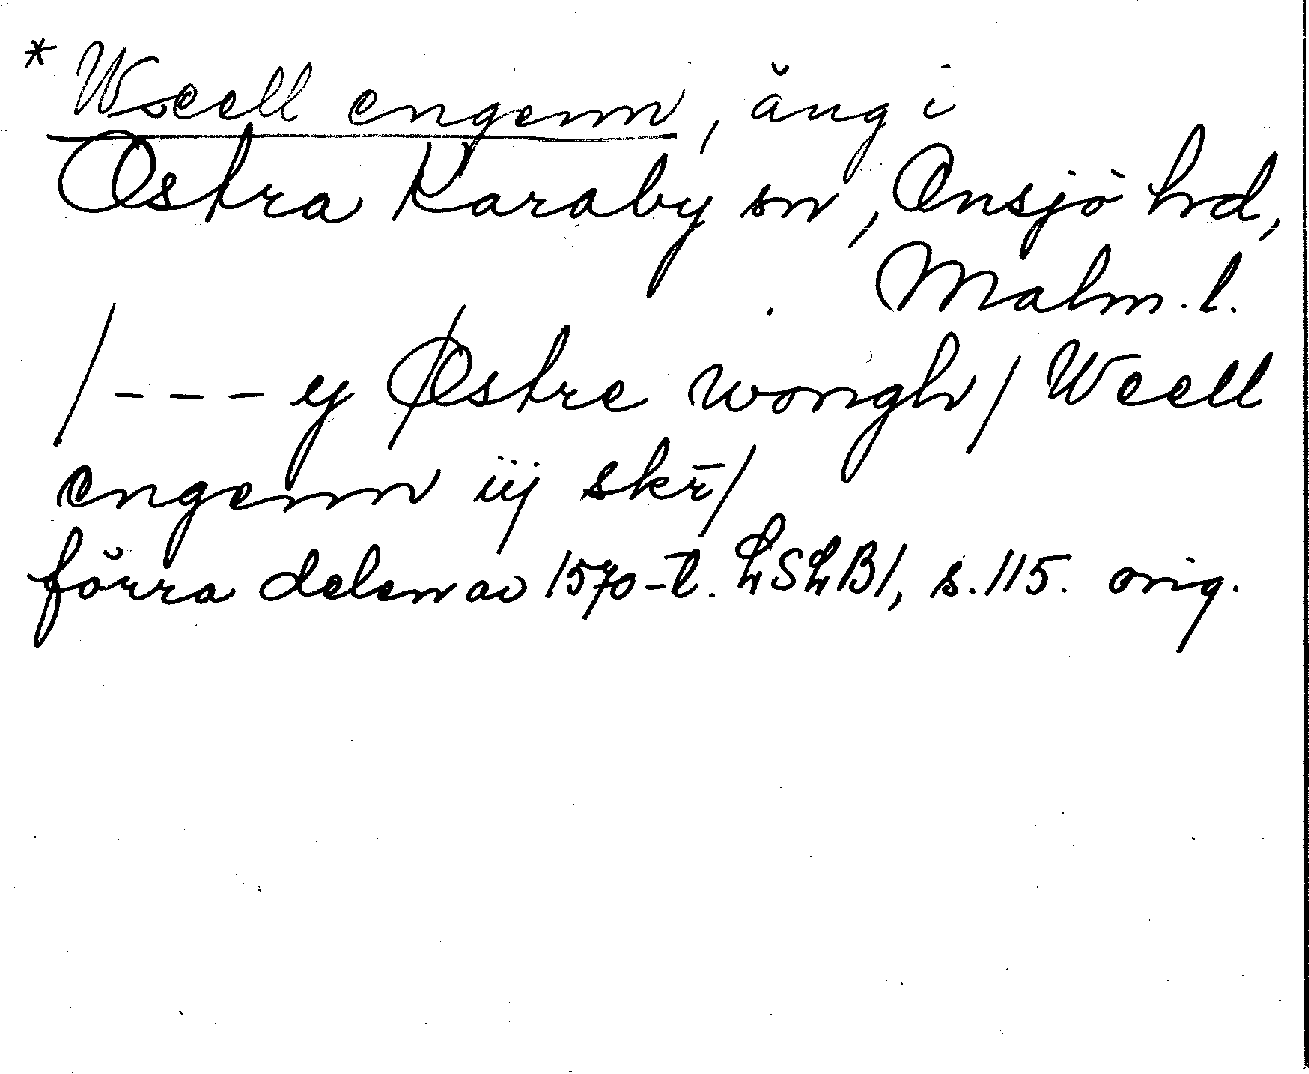 * Weell engenn, äng i
Östra Karaby sn, Onsjö hd,
Malm. l.
/ - - - y Østre wongh / Weell
engenn iij skr̄ /
förra delen av 1570-t. LSLB1, s. 115. orig.